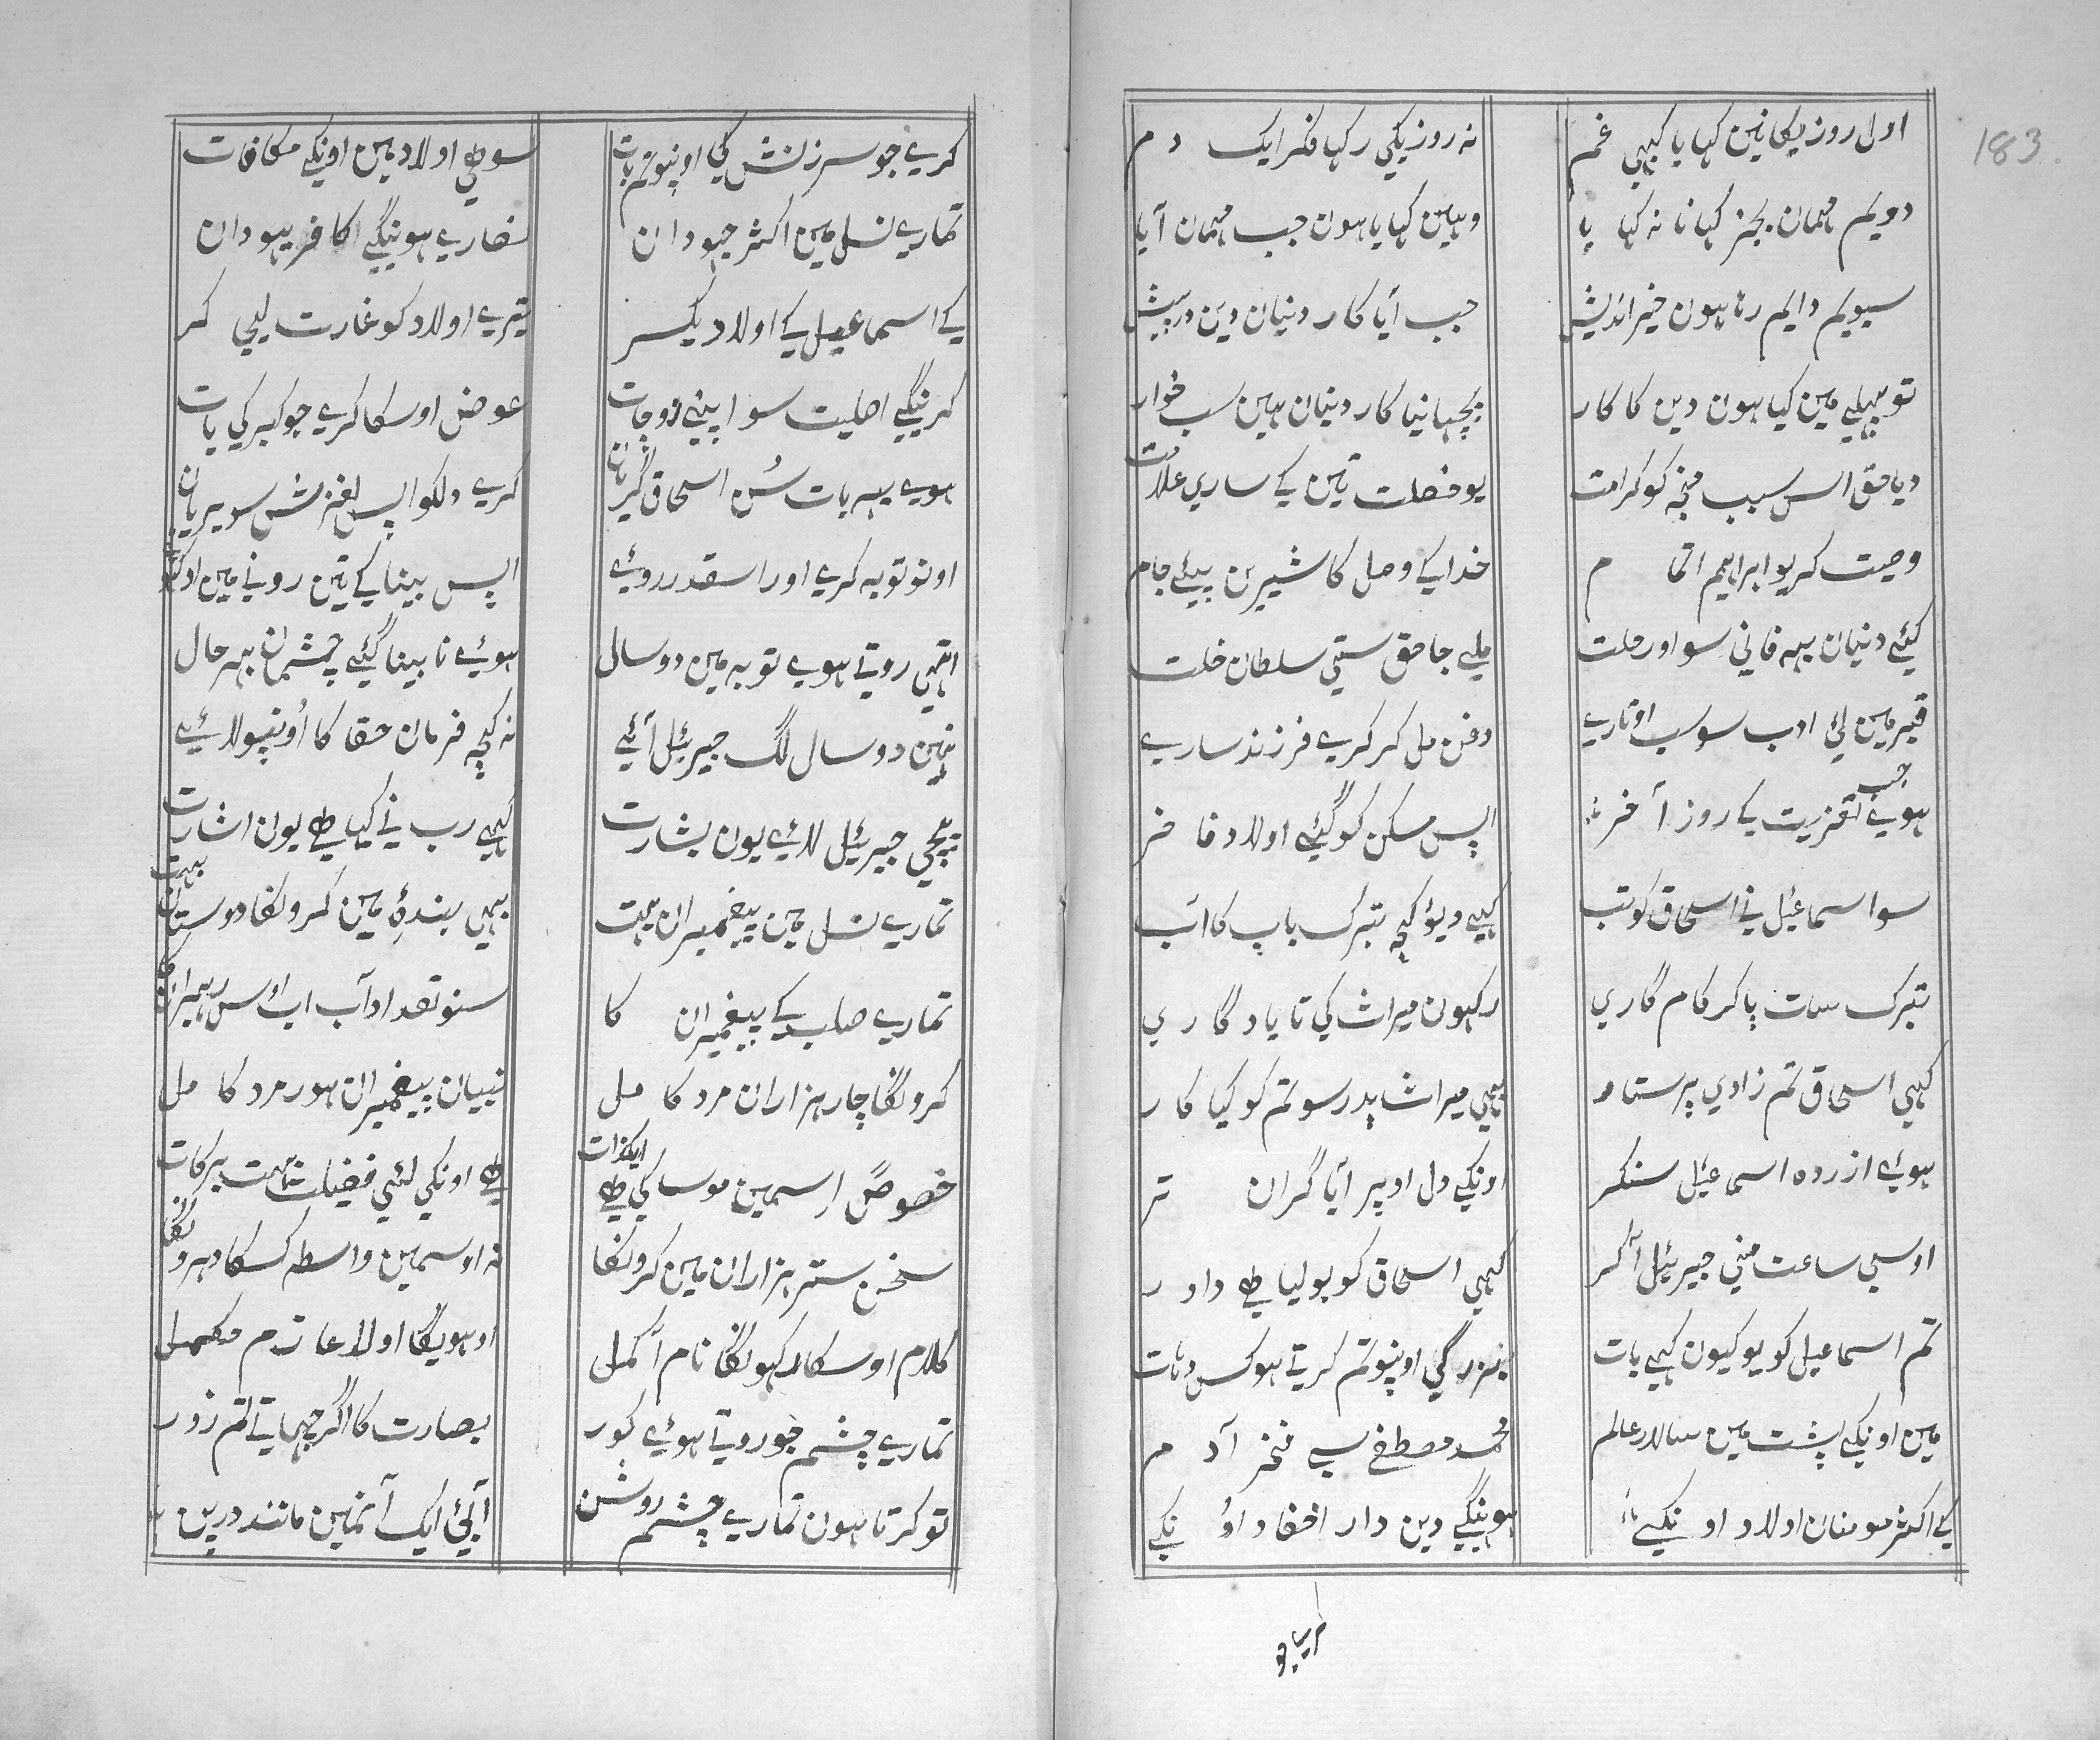 183
اول روز یکا نین کہا یا کبہی غم
نہ روزیکی رکہا فکر ایک دم
دویم مہمان بجز کہانا نہ کہایا
وہین کہایا ہون جب مہمان آیا
سیویم دایم رہا ہون خیر اندیش
جب آیا کار دنیان دین درپیش
تو پہلے مین کیا ہون دین کا کار
پچہانیا کار دنیان ہین سب خوار
دیا حق اس سبب منجہ کو کرامت
یو خصلت تین کے ساری علامت
وصیت کریو ابراہیم اتمام
خدا کے وصل کا شیرین پیئے جام
کیئے دنیان یہہ فانی سو اور حلت
ملے جا حق ستی سلطان خلت
قبر مین لی ادب سو سب اوتارے
دفن مل کر کرے فرزند سارے
ہوئے جب تعزیت کے روز آخر
اپس مسکن کو گئیے اولاد فاخر
سو اسماعیل نے اسحاق کو تب
کہیے دیؤ کچہ تبرک باپ کا اب
تبرک سات پاکر کام گاری
رکہون میراث کی تا یادگاری
کہی اسحاق تم زادی پرستار
ہمی میراث پدر سو تم کو کیا کار
ہوئے ازردہ اسماعیل سنکر
اونکے دل اوپر آیا گران تر
اوسی ساعت منی جبرئیل آکر
کہی اسحاق کو بولیا ہے داور
تم اسماعیل کو یو کیون کہیے بات
بزرگی اوپنو تم کرتے ہو کس دہات
مین اونکے پشت مین سالار عالم
محمد مصطفے سے فخر آدم
کے اکثر مومنان اولاد اونکے
ہوینگے دین دار احفاد اونکے
کریے جو
کریے جو سرزنش کی اوپنو تم بات
سو ہی اولاد مین اونکے مکافات
تمارے نسل مین اکثر جہودان
نصارے ہوینگے کافر یہودان
کے اسماعیل کے اولاد یکسر
تیرے اولاد کو غارت لیی کر
کرینگے اہلیت سو اپنے زوجات
عوض اوسکا کرے جو کبر کی بات
ہوے یہہ بات سن اسحاق گریان
کرے دلکو اپس لغزش سو بریان
اونو توبہ کرے اور اسقدر روئے
اپس بینا کے تین رونے مین او کہوئے
اتہی روتے ہوے توبہ مین دو سال
ہوئے نابینا گئیے چشمان بہر حال
نہین دو سال لگ جبرئیل آئیے
نہ کچہ فرمان حقا کا اوپنو لائیے
پچہی جبرئیل لائے یون بشارت
کہیے رب نے کیا ہے یون اشارت
تمارے نسل مین پیغمبران بہت
ہمی بندہ مین کرونگا دوستان بہت
تمارے صلب کے پیغمبران کا
سنو تعداد آب اوس رہبران کا
کرونگا چار ہزاران مرد کامل
نبیان پیغمبران ہور مرد کامل
خصوصً اسمین موسا کی ہے ایکذات
ہے اونکی لئی فضیلت بہت برکات
سخن ستر ہزاران مین کرونگا
نہ اوسمین واسطہ کسکا دہرونگا
کلام اوسکا رکہونگا نام اکمل
او ہویگا اولا عازم مکمل
تمارے چشم جو روتے ہوئے کور
بصارت کا اگر چہاتے تم زور
تو کرتا ہون تمارے چشم روشن
آبئ ایک آنمین مانند درپن